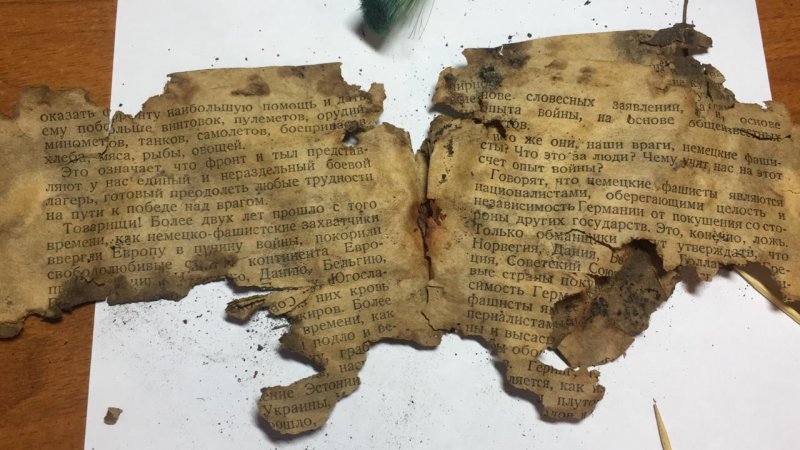 оказать фронту наибольшую помощь и дать
ему побольше винтовок, пулеметов, орудий,
минометов, танков, самолетов, боеприпасов,
хлеба, мяса, рыбы, овощей.
Это означает, что фронт и тыл представ-
ляют у нас единый и нераздельный боевой
лагерь, готовый преодолеть любые трудности
на пути к победе над врагом.
Товарищи! Более двух лет прошло с того
времени, как немецко-фашистские захватчики
ввергли Европу в пучину войны, покорили
свободолюбивые континента Евро-
Данию, Бельгию,
Югосла-
них кровь
Более
времени, как
подло и ве-
граб
нас
ение Эстонии
Украины,
ошло,
нове словесных заявлений, а на основе
опыта войны, на основе общеизвестных
тов.
же они, наши враги, немецкие фаши-
сты? Что это за люди? Чему учит нас на этот
счет опыт войны?
Говорят, что немецкие фашисты являются
националистами, оберегающими целость и
независимость Германии от покушения со сто-
роны других государств. Это, конечно, ложь.
Только обманщики могут утверждать, что
Норвегия, Дания,
ция, Советский Союз
вые страны
симость Герм
фашисты
периалистами
ны и высас
бы обо
Герин
ляется, как и
плуто